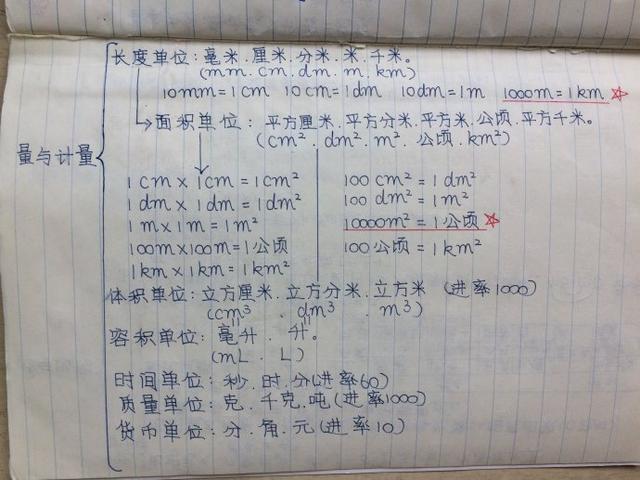 长度单位：毫米.厘米.分米.米.千米。
(mm.cm.dm.m.km)
10mm=1cm 10cm=1dm 10dm=1m 1000m=1km ☆
→面积单位：平方厘米.平方分米.平方米.公顷.平方千米。
(cm².dm².m².公顷.km²)
量与计量
1cm×1cm=1cm² 100cm²=1dm²
1dm×1dm=1dm² 100dm²=1m²
1m×1m=1m² 10000m²=1公顷☆
100m×100m=1公顷 100公顷=1km²
1km×1km=1km²
体积单位：立方厘米.立方分米.立方米 (进率1000)
(cm³.dm³.m³)
容积单位：毫升.升。
(mL.L)
时间单位：秒.时.分(进率60)
质量单位：克.千克.吨(进率1000)
货币单位：分.角.元(进率10)